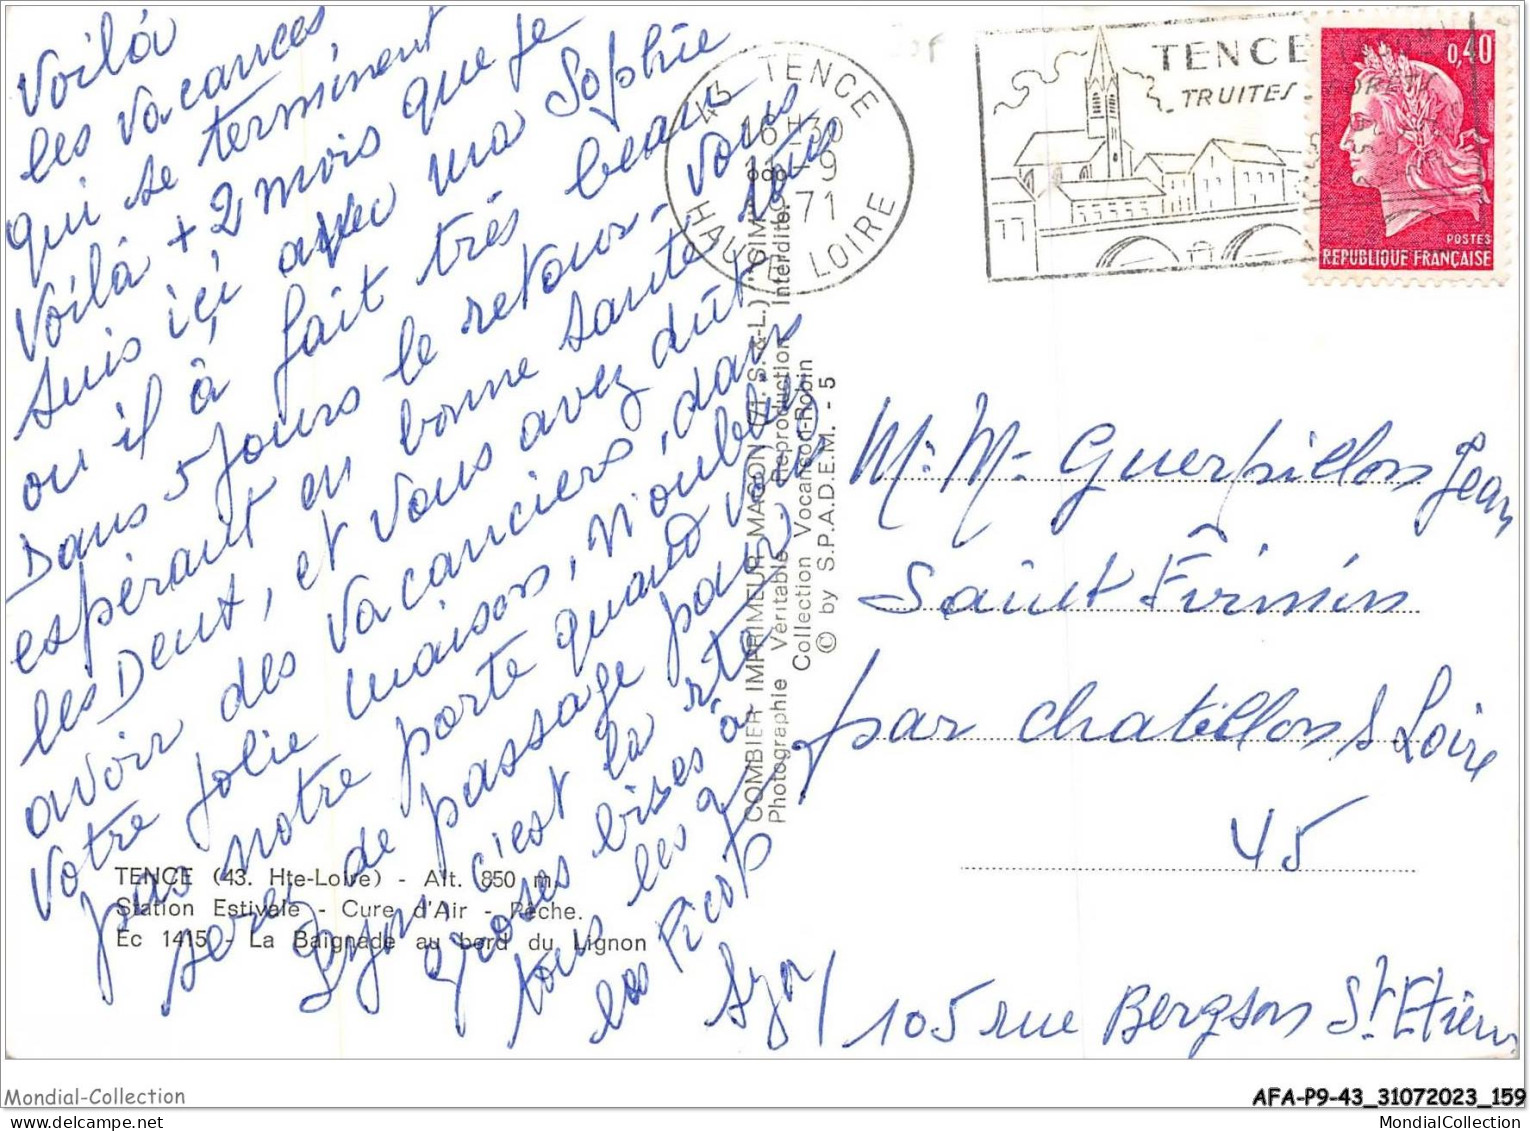 Voilà
les vacances
qui se terminent
Voilà + 2 mois que je
suis içi avec ma Sophie
ou il à fait très beau
Dans 5 jours le retour
espérant en bonne santé vous
les Deux, et vous avez dût
avoir des vacanciers, dans
Votre jolie maison, n'oubliez
pas notre porte quand vous
serez de passage pour
Lyon c'est la rte
grosses bises à
tous les 2
les Picot
TENCE (43. Hte-Loire) - Alt. 850 m.
Station Estivale - Cure d'Air - Pêche.
Ec 1415 - La Baignade au bord du Lignon
COMBIER IMPRIMEUR MACON (71. S.-&-L.) ("CIM")
Photographie Véritable - Reproduction Interdite
Collection Vocanson-Robin
© by S.P.A.D.E.M. - 5
43 TENCE
16H30
11-9
1971
HAUTE LOIRE
TENCE
TRUITES - FORETS
0,40
POSTES
REPUBLIQUE FRANÇAISE
M. M- Guerpillon Jean
Saint Firmin
par chatillon s Loire
45
105 rue Bergson St Etienne
Mondial-Collection
AFA-P9-43_31072023_159
MondialCollection